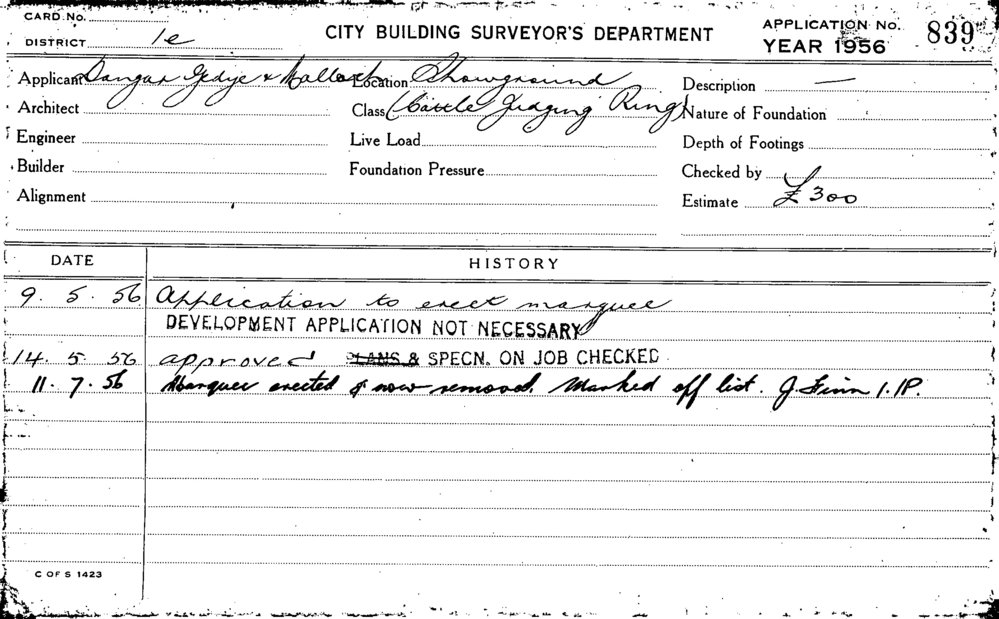 CARD No.
DISTRICT 1e
CITY BUILDING SURVEYOR'S DEPARTMENT
APPLICATION No. 839
YEAR 1956
Applicant Dangar Gedye & Malloch Location Showground Description —
Architect Class (Cattle Judging Ring) Nature of Foundation
Engineer Live Load Depth of Footings
Builder Foundation Pressure Checked by
Alignment Estimate £300
DATE HISTORY
9. 5. 56 Application to erect marquee
DEVELOPMENT APPLICATION NOT NECESSARY
14. 5. 56 approved PLANS & SPECN. ON JOB CHECKED
11. 7. 56 Marquee erected & now removed. Marked off list. J. Finn 1.1P.
C OF S 1423